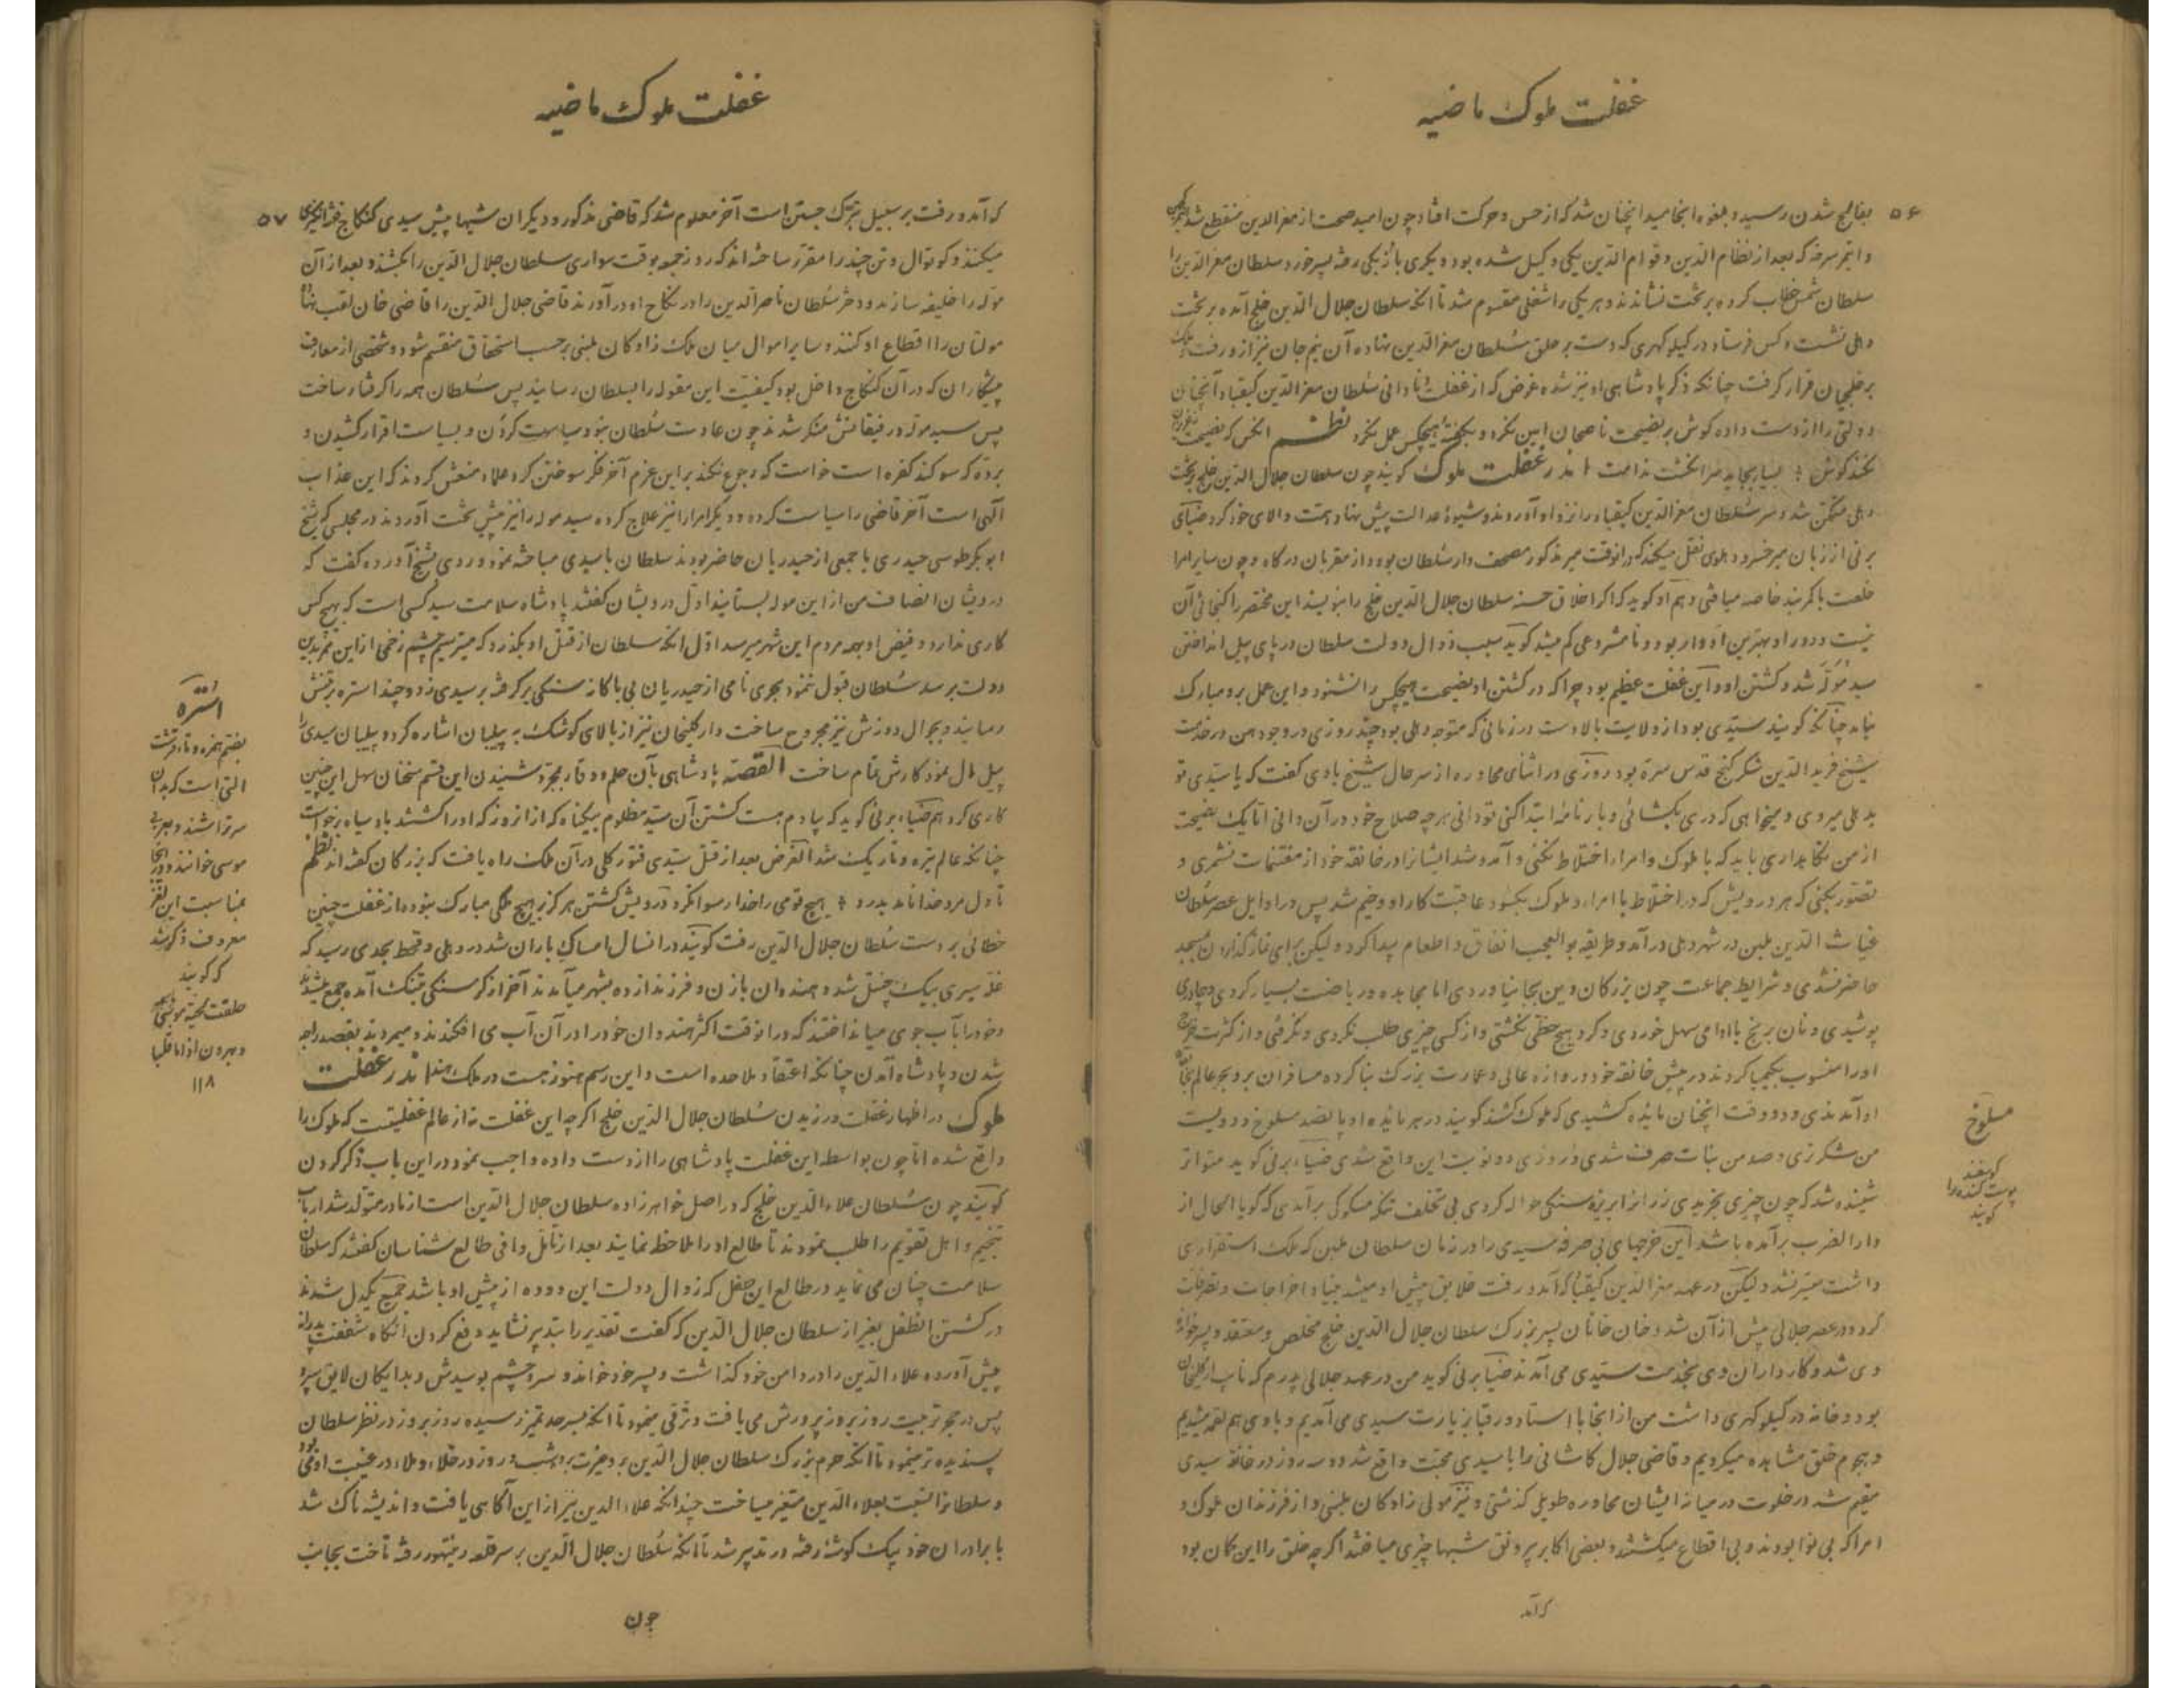 غفلت ملوک ماضیه
۵۶
بفالج شدن رسید و بلغوه انجامید انچنان شد که از حس و حرکت افتاد چون امید صحت از معزالدین منقطع شد
و ایتمر سرخه که بعد از نظام الدین و قوام الدین یکی وکیل شده بود و دیکری باربکی رفته پسر خورد سلطان معزالدین را
سلطان شمس خطاب کرده بر تخت نشاندند و هر یکی را شغلی مقسوم شد تا انکه سلطان جلال الدین خلج آمده بر تخت
دهلی نشست و کس فرستاد در کیلوکهری که دست بر حلق سلطان معزالدین نهاده آن نیم جان نیز ازو رفت
بر خلجیان قرار گرفت چنانکه ذکر پادشاهی او نیز شده غرض که از غفلت و نادانی سلطان معزالدین کیقباد آنچنان
دولتی را از دست داده کوش بر نصیحت ناصحان امین نکرد و بکفتهٔ هیچکس عمل نکرد نظم انکس که نصیحت
نکند کوش بسیار بخاید سر انکشت ندامت اندر غفلت ملوک کویند چون سلطان جلال الدین خلج بر تخت
دهلی متمکن شد و سر سلطان معزالدین کیقباد را نزد او آوردند و شیوهٔ عدالت پیش نهاد همت والای خود کرد ضیای
برنی از زبان میر خسرو دهلوی نقل میکند که در انوقت میر مذکور مصحف دار سلطان بود و از مقربان درکاه و چون سایر امرا
خلعت با کمربند خاصه میافتی و هم او کوید که اکر اخلاق حسنه سلطان جلال الدین خلج را بنویسند این مختصر را کنجائی آن
نیست و دور او بهترین ادوار بود و نامشروعی کم میشد کویند سبب زوال دولت سلطان در پای پیل انداختن
سید مُوَلَّه شد و کشتن او و این غفلت عظیم بود چرا که در کشتن او نصیحت هیچکس را نشنود و این عمل برو مبارک
نیامد چنانکه کویند سیّدی بود از ولایت بالادست در زمانی که متوجه دهلی بود چند روزی در وجودهن در خدمت
شیخ فرید الدین شکر کنج قدس سره بود روزی در اثنای محاوره از سر حال شیخ بادی کفت که یا سیّدی تو
بدهلی میروی و میخواهی که دری بکشائی و بار نامهٔ ابتدا کنی تو دانی هر چه صلاح خود در آن دانی اما یک نصیحت
از من نکابداری باید که با ملوک و امرا اختلاط نکنی و آمد و شد ایشانرا در خانقه خود از مغتنمات نشمری و
تصور بکنی که هر درویش که در اختلاط با امرا و ملوک بکشود عاقبت کار او وخیم شد پس در اوایل عصر سلطان
غیاث الدین بلبن در شهر دهلی در آمد و طریقه بوالعجب انفاق و اطعام پیدا کرد و لیکن برای نماز کذاردن مسجد
حاضر نشدی و شرایط جماعت چون بزرکان دین بجا نیاوردی اما مجاهده و ریاضت بسیار کردی و چادری
پوشیدی و نان برنج با ادامی سهل خوردی و کرد هیچ حظّی نکشتی و از کسی چیزی طلب نکردی و نکرفتی و از کثرت خرج
او را منسوب بکیمیا کردند در پیش خانقه خود دروازه عالی و عمارت بزرک بنا کرده مسافران بر و بحر عالم
او آمدندی و دو وقت انچنان مایده کشیدی که ملوک کشند کویند در هر مایده او پانصد مسلوخ و دویست
من شکر تری و صد من نبات صرف شدی در روزی دو نوبت این واقع شدی ضیاء برنی کوید متواتر
شنیده شد که چون چیزی بخریدی زر انرا بریزه سنکی حواله کردی بی تخلف تنکه مسکوکی برآمدی که کویا الحال از
دارالضرب برآمده باشد این خرجهای بی صرفه سیدی را در زمان سلطان بلبن که ملک استقراری
داشت میسر نشد و لیکن در عهد معزالدین کیقباد که آمد و رفت خلایق پیش او میشد بنیاد اخراجات و تصرفات
کرد و در عصر جلالی پیش از آن شد و خان خانان پسر بزرک سلطان جلال الدین خلج مخلص و معتقد و پسر خواندهٔ
وی شد و کارداران وی بخدمت سیّدی می آمدند ضیا برنی کوید من در عهد جلالی پدرم که نایب ارکلیخان
بود و خانه در کیلوکهری داشت من از انجا با استاد و رقبا بزیارت سیدی می آمدیم و با وی هم لقمه میشدیم
و هجوم خلق مشاهده میکردیم و قاضی جلال کاشانی را با سیدی محبت واقع شد دو سه روز در خانقه سیدی
مقیم شد در خلوت در میانه ایشان محاوره طویل کذشتی و نیز مولی زادکان بلبنی و از فرزندان ملوک و
امرا که بی نوا بودند و بی اقطاع میکشتند و بعضی اکابر بی رونق شبها چیزی میساختند اکرچه خلق را این کمان بود
که آمد
مسلوخ
کوسفند
پوست کنده را
کویند
غفلت ملوک ماضیه
۵۷
که آمد و رفت بر سبیل تبرّک جستن است آخر معلوم شد که قاضی مذکور و دیکران شبها پیش سیدی کنکاج فتنه انکیزی
میکنند و کوتوال و تن چند را مقرر ساخته اند که روز جمعه بوقت سواری سلطان جلال الدین را بکشند و بعد از آن
مولّه را خلیفه سازند و دختر سلطان ناصر الدین را در نکاح او در آورند قاضی جلال الدین را قاضی خان لقب نهاده
مولتان را اقطاع او کنند و سایر اموال میان ملک زادکان بلبنی بر حسب استحقاق منقسم شود و شخصی از معارف
پیشکاران که در آن کنکاج داخل بود کیفیّت این مقوله را بسلطان رسانید پس سلطان همه را کرفتار ساخت
پس سید موله و رفیقانش منکر شدند چون عادت سلطان نبود سیاست کردن و بسیاست اقرار کشیدن و
برده که سوکند کفره است خواست که رجوع نکند بر این عزم آخر فکر سوختن کرد علماء منعش کردند که این عذاب
آلهی است آخر قاضی را سیاست کرده و دیکر امرا را نیز علاج کرده سید موله را نیز پیش تخت آوردند در مجلسی که شیخ
ابوبکر طوسی حیدری با جمعی از حیدریان حاضر بودند سلطان با سیدی مباحثه نمود و روی بشیخ آورده کفت که
درویشان انصاف من از این موله بستانید اوّل درویشان کفتند پادشاه سلامت سید کسی است که بهیچ کس
کاری ندارد و فیض او بهمه مردم این شهر میرسد اوّل انکه سلطان از قتل او بکذرد که میترسیم چشم زخمی از این ممر بدین
دولت برسد سلطان قبول ننمود بحری نامی از حیدریان بی باکانه سنکی بر کرفته بر سیدی زد و چند استره بر تنش
رسانید و بجوال دوزش نیز مجروح ساخت و ارکلیخان نیز از بالای کوشک به پیلبان اشاره کرد و پیلبان سیدی را
پیل مال نمود کارش تمام ساخت القصّه پادشاهی بآن حلم و وقار بمجرد شنیدن این قسم سخنان سهل این چنین
کاری کرد هم ضیاء برنی کوید که یادم هست کشتن آن سیّد مظلوم بیکناه که از انروز که او را کشتند باد سیاه برخواست
چنانکه عالم تیره و تاریک شد الغرض بعد از قتل سیّدی فتور کلی در آن ملک راه یافت که بزرکان کفته اند نظم
تا دل مرد خدا نامد بدرد هیچ قومی را خدا رسوا نکرد درویش کشتن هرکز بر هیچ ملکی مبارک نبوده از غفلت چنین
خطائی بر دست سلطان جلال الدین رفت کویند در انسال امساک باران شد در دهلی و قحط بحدی رسید که
غلّه سیری بیک چیتل شد و هندوان با زن و فرزند از ده بشهر میآمدند آخر از کرسنکی بتنک آمده جمع میشدند
و خود را بآب جوی میانداختند که در انوقت اکثر هندوان خود را در آن آب می افکندند و میمردند بقصد راجه
شدن و پادشاه آمدن چنانکه اعتقاد ملاحده است و این رسم هنوز هست در ملک هند اندر غفلت
ملوک در اظهار غفلت ورزیدن سلطان جلال الدین خلج اکرچه این غفلت نه از عالم غفلتیست که ملوک را
واقع شده امّا چون بواسطه این غفلت پادشاهی را از دست داده واجب نمود در این باب ذکر کردن
کویند چون سلطان علاء الدین خلج که در اصل خواهرزاده سلطان جلال الدین است از مادر متولّد شد ارباب
تنجیم و اهل تقویم را طلب نمودند تا طالع او را ملاحظه نمایند بعد از تأمّل وافی طالع شناسان کفتند که سلطان
سلامت چنان می نماید در طالع این طفل که زوال دولت این دوده از پیش او باشد جمیع یکدل شدند
در کشتن انطفل بغیر از سلطان جلال الدین که کفت تقدیر را بتدبیر نشاید دفع کردن انکاه شفقت پدرانه
پیش آورده علاء الدین را در دامن خود کذاشت و پسر خود خواند و سر و چشم بوسیدش و بدایکان لایق سپرد
پس در حجر تربیت روز بروز پرورش می یافت و ترقی مینمود تا انکه بسر حد تمیز رسیده روز بروز در نظر سلطان
پسندیده تر مینمود تا انکه حرم بزرک سلطان جلال الدین برو غیرت برد شب و روز در خلاء و ملاء در غیبت او می
و سلطانرا نسبت بعلاء الدین متغیر میساخت چندانکه علاء الدین نیز از این آکاهی یافت و اندیشه ناک شد
با برادران خود بیک کوشه رفته در تدبیر شد تا انکه سلطان جلال الدین بر سر قلعه رنتهور رفته تاخت بجانب
چون
اُسْتُرَه
بضم همزه و تاء قرشت
التی است که بدان
سر تراشند و بعربی
موسی خوانند و در اینجا
بمناسبت این لغز
معروف ذکر شد
که کویند
۱۱۸